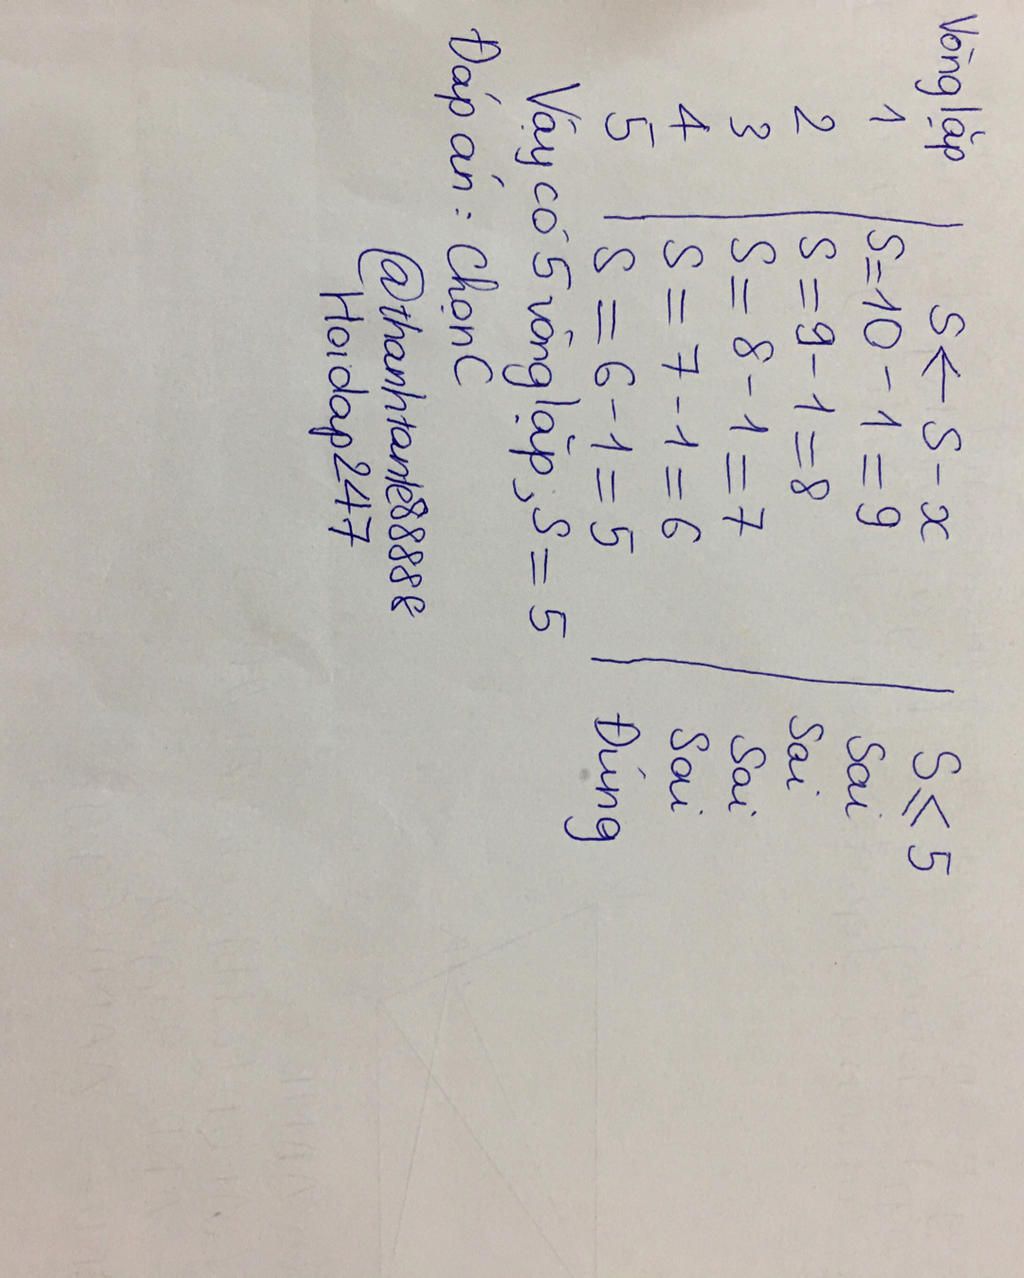 Vòng lặp | S ← S - x | S ≤ 5
1 | S = 10 - 1 = 9 | Sai
2 | S = 9 - 1 = 8 | Sai
3 | S = 8 - 1 = 7 | Sai
4 | S = 7 - 1 = 6 | Sai
5 | S = 6 - 1 = 5 | Đúng
Vậy có 5 vòng lặp, S = 5
Đáp án: Chọn C
@thanhtanle8888
Hoidap247